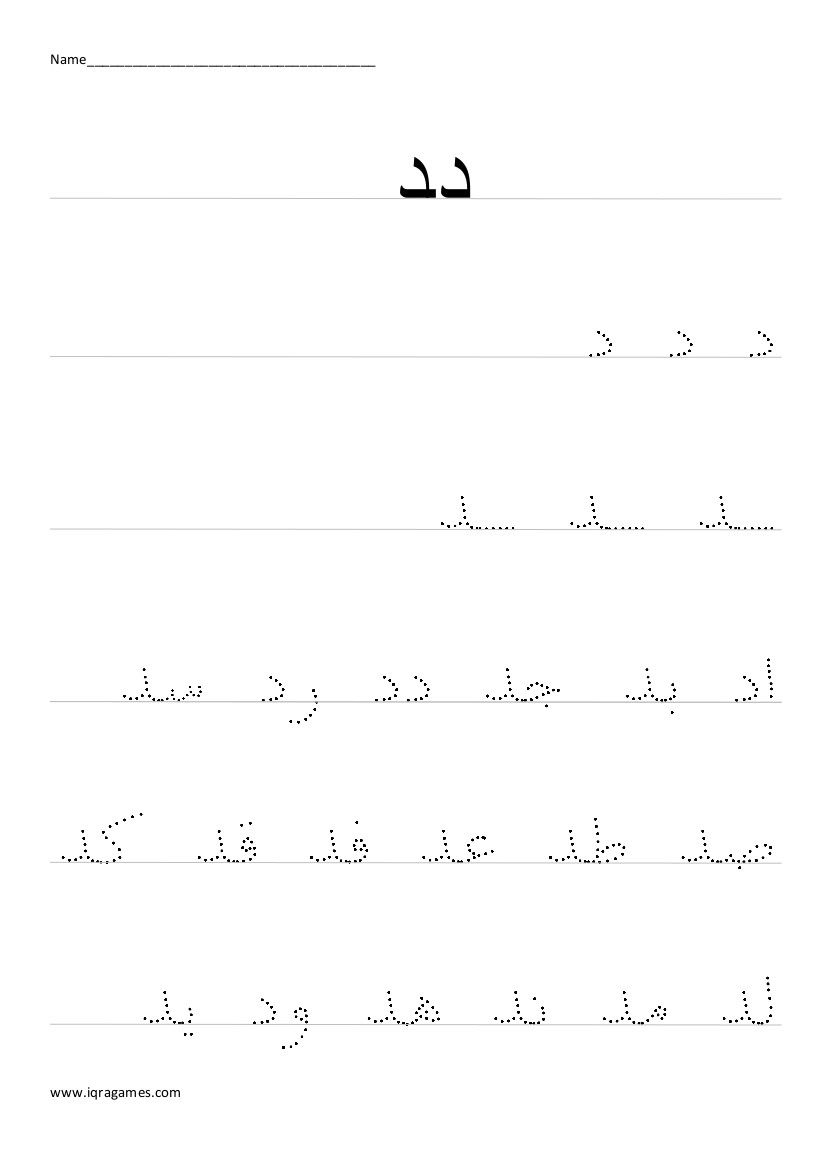 Name_____________________________________
د ـد
د د د
ـد ـد ـد
اد بد جد دد رد سد
صد طد عد فد قد كد
لد مد ند هد ود يد
www.iqragames.com